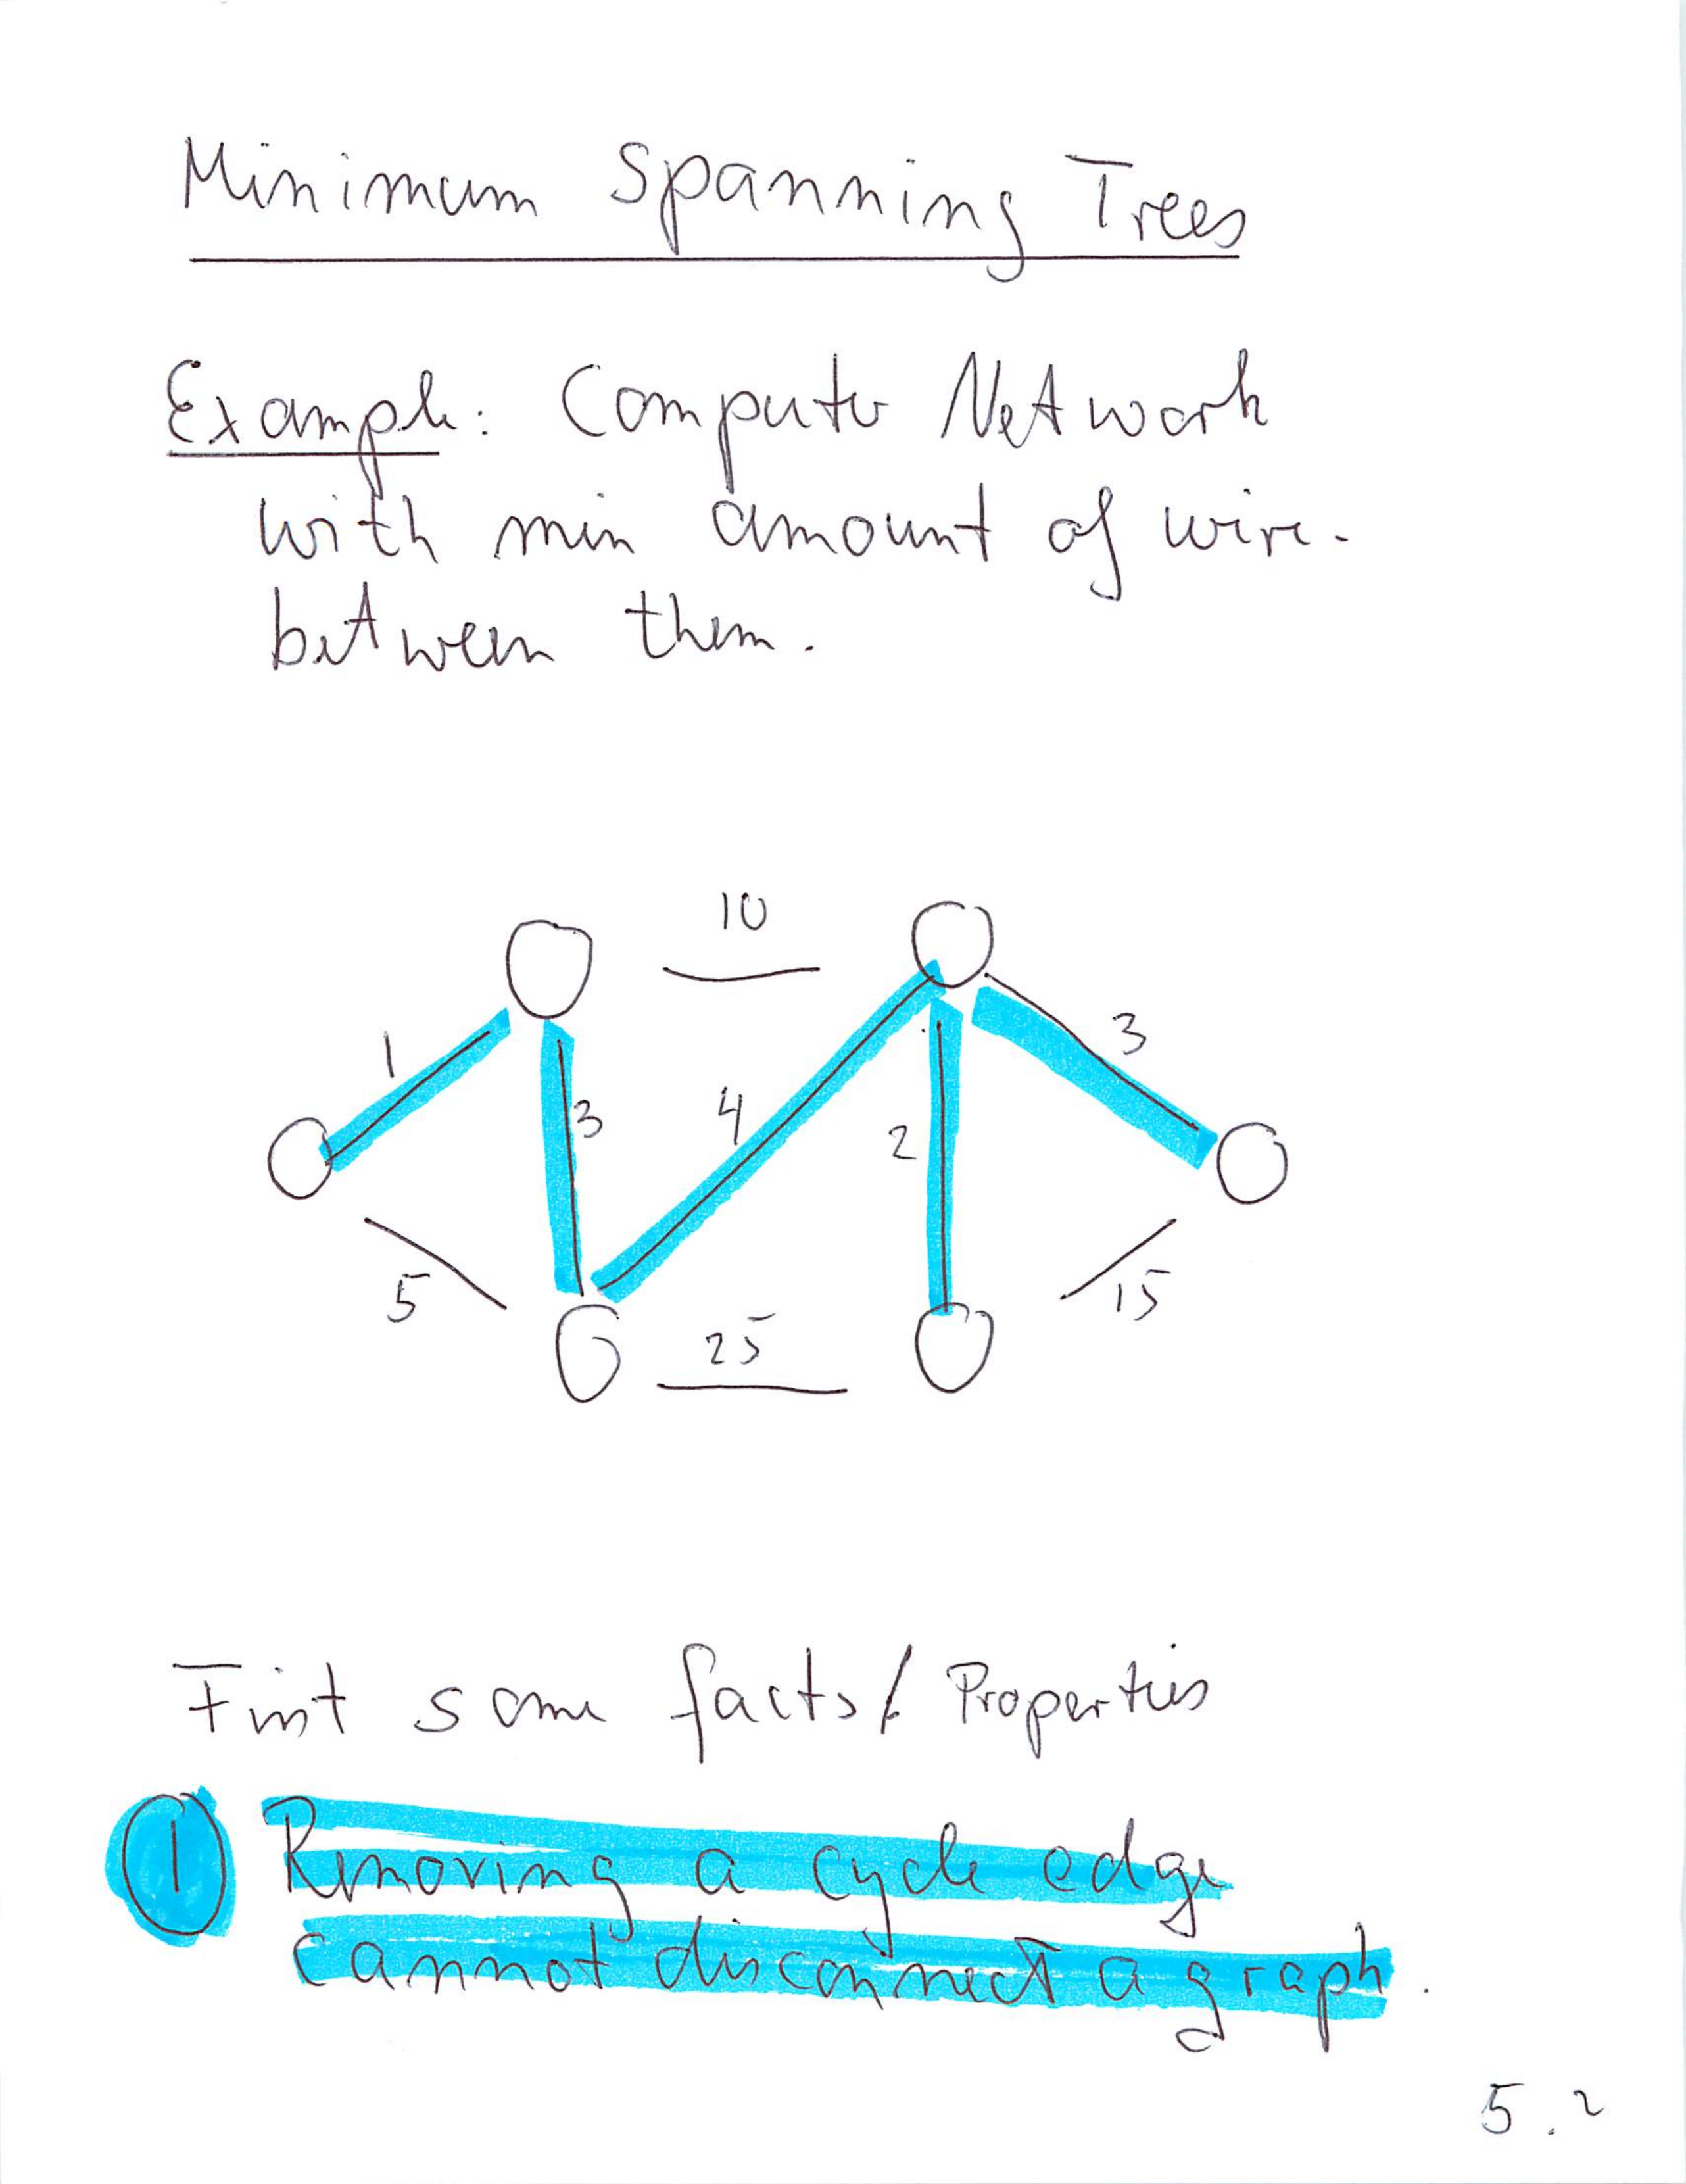 Minimum Spanning Trees
Example: Computer Network
with min amount of wire.
between them.
10
1
3
4
2
3
5
25
15
First some facts/Properties
1 Removing a cycle edge
cannot disconnect a graph.
5.2